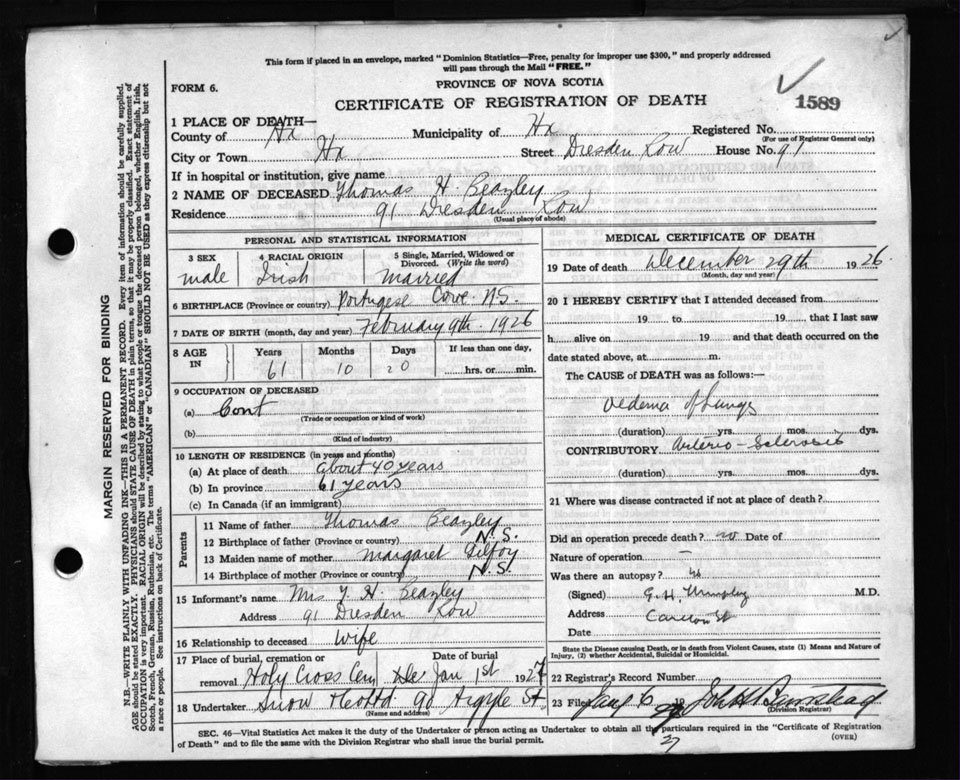 This form if placed in an envelope, marked "Dominion Statistics—Free, penalty for improper use $300," and properly addressed
will pass through the Mail "FREE."
FORM 6.
PROVINCE OF NOVA SCOTIA
CERTIFICATE OF REGISTRATION OF DEATH
1589
1 PLACE OF DEATH—
County of Hx Municipality of Hx Registered No.
(For use of Registrar General only)
City or Town Hx Street Dresden Row House No. 91
If in hospital or institution, give name
2 NAME OF DECEASED Thomas H. Beazley
Residence 91 Dresden Row
(Usual place of abode)
PERSONAL AND STATISTICAL INFORMATION
3 SEX 4 RACIAL ORIGIN 5 Single, Married, Widowed or
Divorced. (Write the word)
male Irish Married
6 BIRTHPLACE (Province or country) Portugese Cove N.S.
7 DATE OF BIRTH (month, day and year) February 9th. 1926
8 AGE IN Years Months Days If less than one day,
61 10 20 hrs. or min.
9 OCCUPATION OF DECEASED
(a) Cont
(Trade or occupation or kind of work)
(b)
(Kind of industry)
10 LENGTH OF RESIDENCE (in years and months)
(a) At place of death about 40 years
(b) In province 61 years
(c) In Canada (if an immigrant)
Parents
11 Name of father Thomas Beazley
12 Birthplace of father (Province or country) N.S.
13 Maiden name of mother Margaret Gilfoy
14 Birthplace of mother (Province or country) N.S.
15 Informant's name Mrs T. H. Beazley
Address 91 Dresden Row
16 Relationship to deceased Wife
17 Place of burial, cremation or Date of burial
removal Holy Cross Cem Jan 1st 1927
18 Undertaker Snow 90 Argyle St.
(Name and address)
MEDICAL CERTIFICATE OF DEATH
19 Date of death December 29th 1926.
(Month, day and year)
20 I HEREBY CERTIFY that I attended deceased from
19 to 19 that I last saw
h alive on 19 and that death occurred on the
date stated above, at m.
The CAUSE of DEATH was as follows:—
Oedema of Lungs
(duration) yrs. mos. dys.
CONTRIBUTORY Arterio-Sclerosis
(duration) yrs. mos. dys.
21 Where was disease contracted if not at place of death?
Did an operation precede death? no Date of
Nature of operation —
Was there an autopsy?
(Signed) G. H. Murphy M.D.
Address Carleton St
Date
State the Disease causing Death, or in death from Violent Causes, state (1) Means and Nature of
Injury, (2) whether Accidental, Suicidal or Homicidal.
22 Registrar's Record Number
23 Filed Jany 6 19 27
(Division Registrar)
SEC. 46—Vital Statistics Act makes it the duty of the Undertaker or person acting as Undertaker to obtain all the particulars required in the "Certificate of Registration
of Death" and to file the same with the Division Registrar who shall issue the burial permit.
(OVER)
27
MARGIN RESERVED FOR BINDING
N.B.—WRITE PLAINLY WITH UNFADING INK—THIS IS A PERMANENT RECORD. Every item of information should be carefully supplied.
AGE should be stated EXACTLY. PHYSICIANS should STATE CAUSE OF DEATH in plain terms, so that it may be properly classified. Exact statement of
OCCUPATION is very important. RACIAL ORIGIN will be described by stating to what people or tongue the deceased person belonged, whether English, Irish,
Scotch, French, German, Russian, Ruthenian, etc. The terms "AMERICAN" or "CANADIAN" SHOULD NOT BE USED as they express citizenship but not
a race or people. See instructions on back of Certificate.